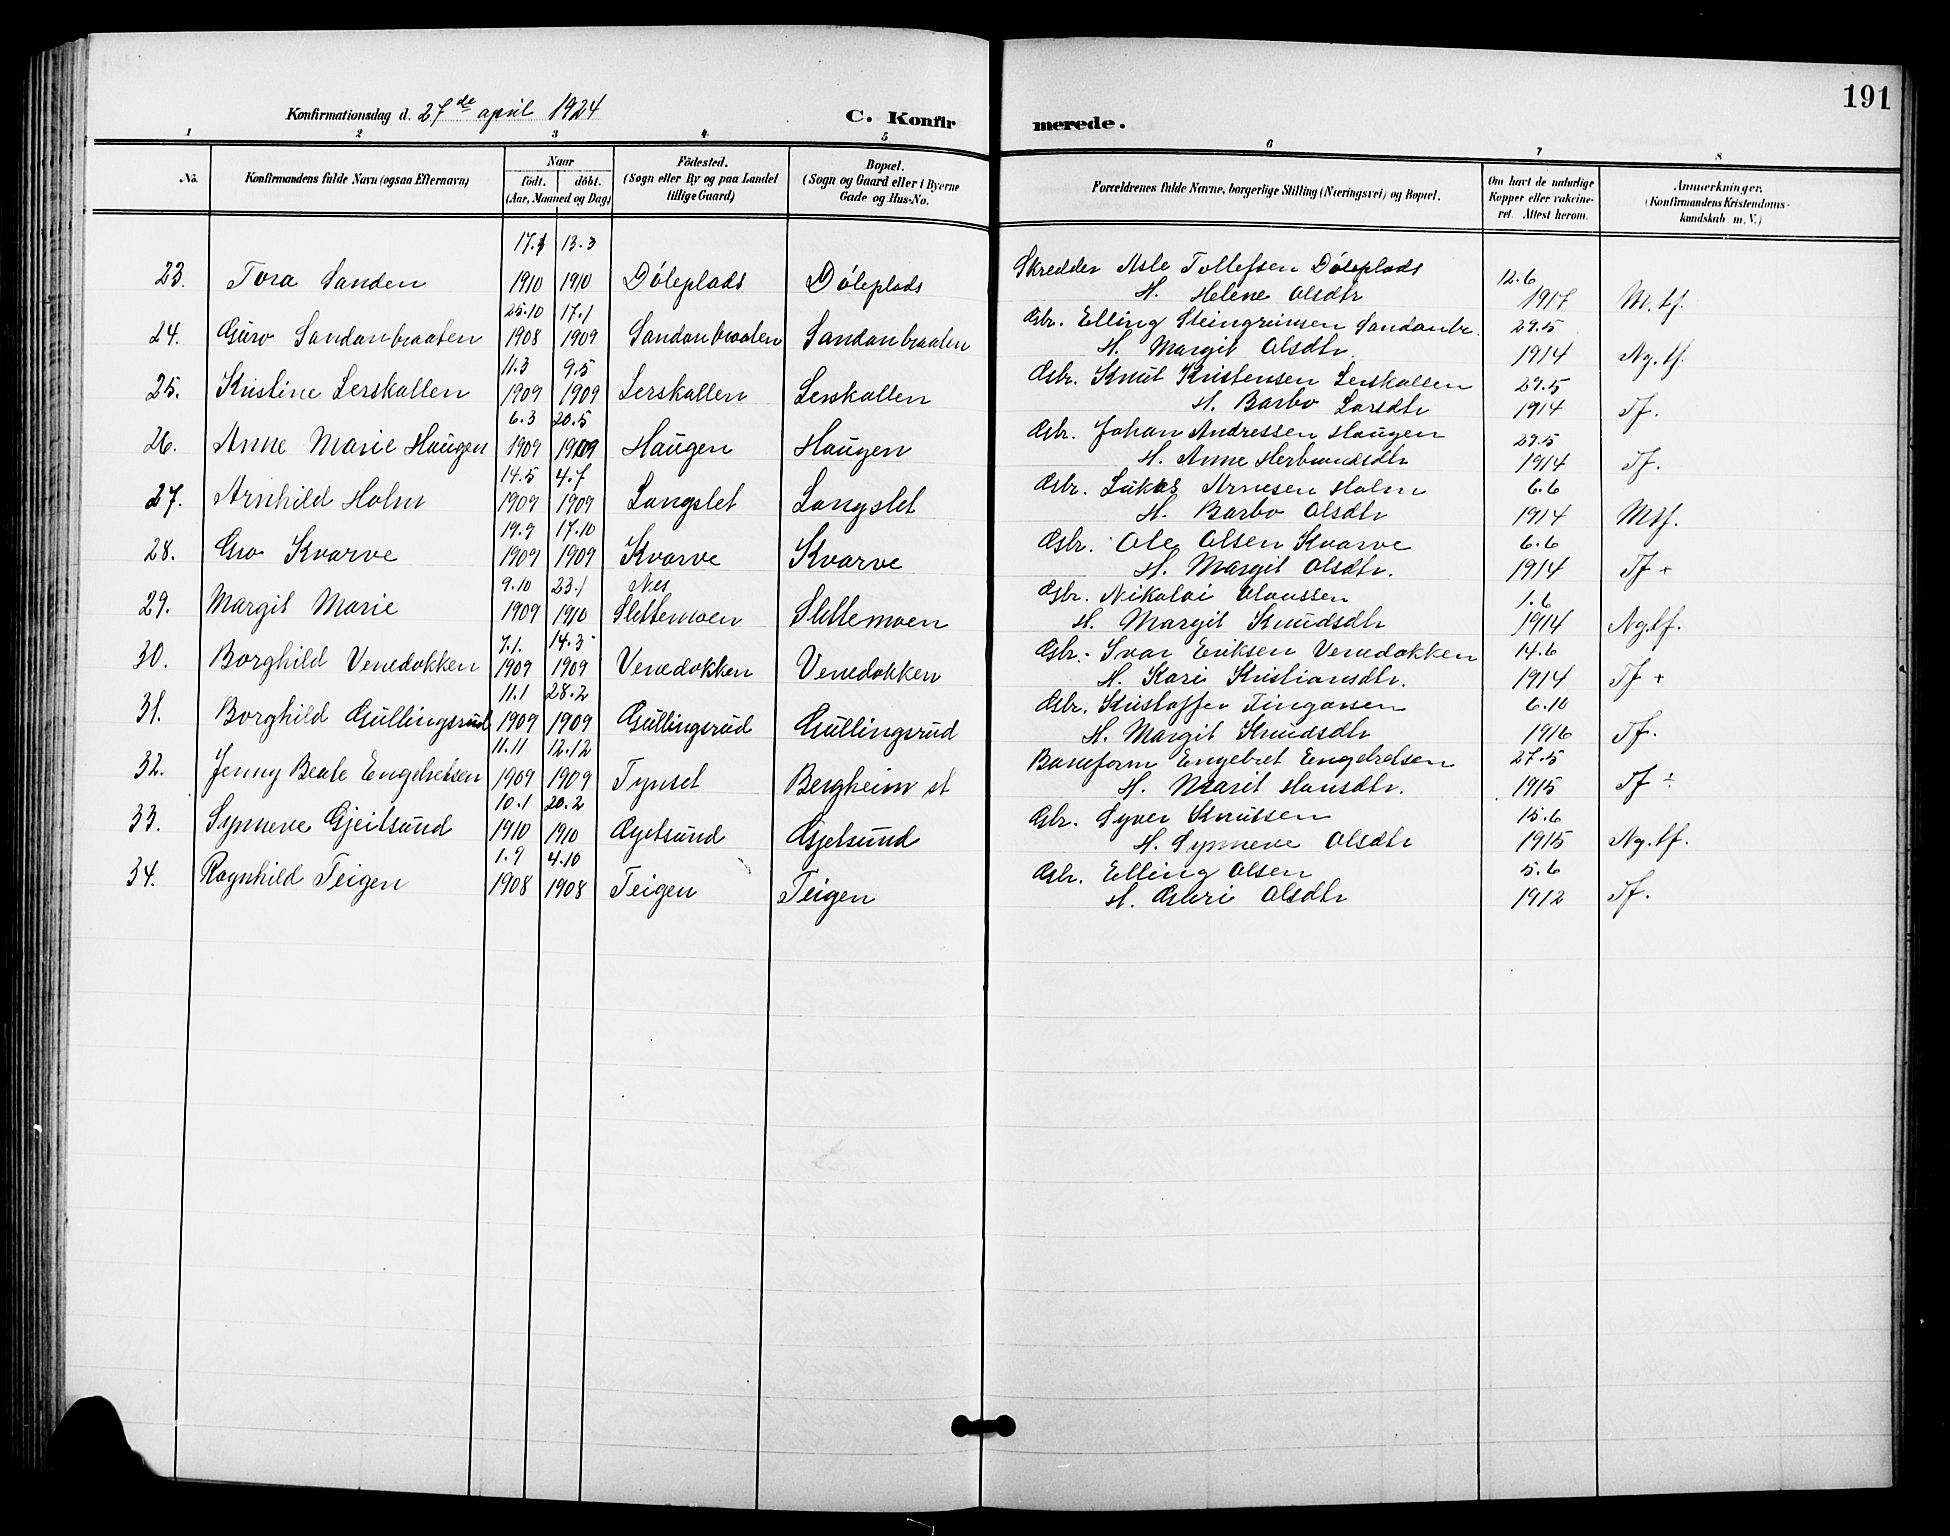 191
Konfirmationsdag d. 27de april 1924
C. Konfirmerede.
1 2 3 4 5 6 7 8
No. Konfirmandens fulde Navn (ogsaa Efternavn) Naar födt. döbt. (Aar, Maaned og Dag) Födested. (Sogn eller By og paa Landet tillige Gaard) Bopæl. (Sogn og Gaard eller i Byerne Gade og Hus-No. Forældrenes fulde Navne, borgerlige Stilling (Næringsvei) og Bopæl. Om havt de naturlige Kopper eller vakcineret. Attest herom. Anmerkninger. (Konfirmandens Kristendomskundskab m. V.)
17.1 13.3 Skredder Asle Tollefsen Döleplads 12.6
23. Tora Sanden 1910 1910 Döleplads Döleplads H. Helene Olsdtr 1917 M.tf.
25.10 17.1 Gbr. Elling Steingrimsen Sandanbr. 29.5
24. Guro Sandanbraaten 1908 1909 Sandanbraaten Sandanbraaten H. Margit Olsdtr. 1914 Ng.tf.
11.3 9.5 Gbr. Knut Kristensen Lerskallen 29.5
25. Kristine Lerskallen 1909 1909 Lerskallen Lerskallen H. Barbo Larsdtr 1914 Tf.
6.3 20.5 Gbr. Johan Andressen Haugen 29.5
26. Anne Marie Haugen 1909 1909 Haugen Haugen H. Anne Herbrandsdtr 1914 Tf.
14.5 4.7 Gbr. Lukas Arnesen Holm 6.6
27. Arnhild Holm 1909 1909 Langslet Langslet H. Barbo Olsdtr 1914 Mtf.
19.9 17.10 Gbr. Ole Olsen Kvarve 6.6
28. Gro Kvarve 1909 1909 Kvarve Kvarve H. Margit Olsdtr. 1914 Tf +
9.10 23.1 Nes Gbr. Nikolai Claussen 1.6
29. Margit Marie 1909 1910 Slettemoen Slettemoen H. Margit Knudsdtr 1914 Ng.tf.
7.1. 14.3 Gbr. Ivar Eriksen Venedokken 14.6
30. Borghild Venedokken 1909 1909 Venedokken Venedokken H. Kari Kristiansdtr. 1914 Tf +
11.1 28.2 Gbr. Kristoffer Fingarsen 6.10
31. Borghild Gullingsrud 1909 1909 Gullingsrud Gullingsrud H. Margit Knudsdtr 1916 Tf.
11.11 12.12 Baneform Engebret Engebretsen 27.5
32. Jenny Beate Engebretsen 1909 1909 Tynset Bergheim st H. Marit Hansdtr. 1915 Tf ÷
10.1 20.2 Gbr. Syver Knutsen 15.6
33. Synneve Gjeitsund 1910 1910 Gjetsund Gjetsund H. Synneve Olsdtr 1915 Ng.tf.
1.9 4.10 Gbr. Elling Olsen 5.6
34. Ragnhild Teigen 1908 1908 Teigen Teigen H. Guri Olsdtr 1912 Tf.